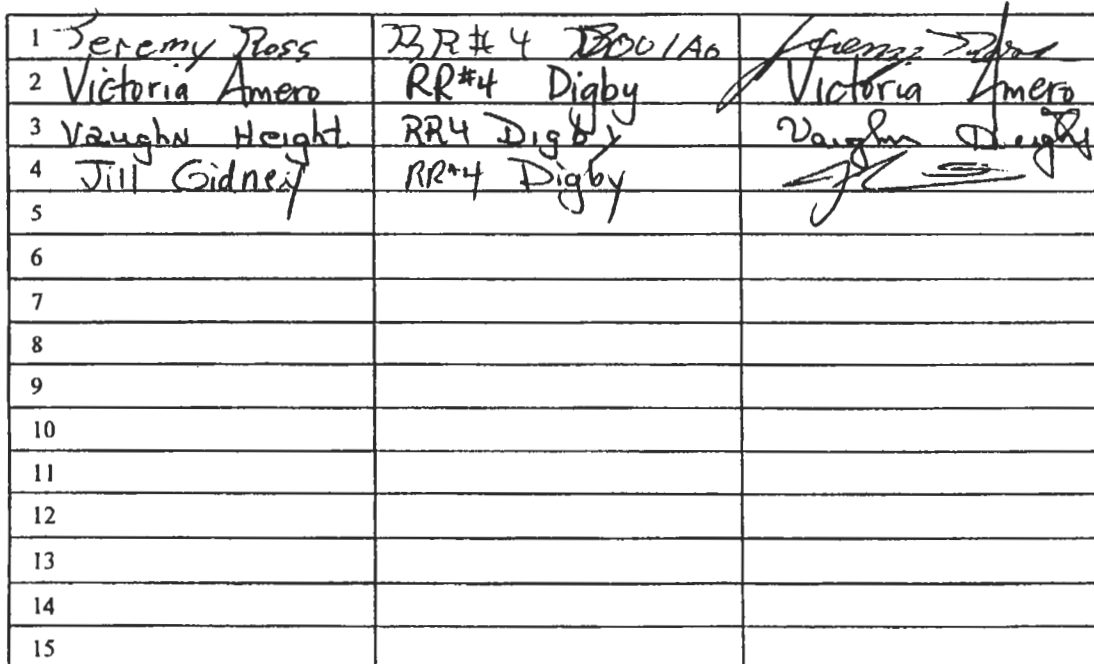 1 Jeremy Ross RR#4 B0V 1A0 Jeremy Ross
2 Victoria Amero RR#4 Digby Victoria Amero
3 Vaughn Height RR4 Digby Vaughn Height
4 Jill Gidney RR#4 Digby
5
6
7
8
9
10
11
12
13
14
15